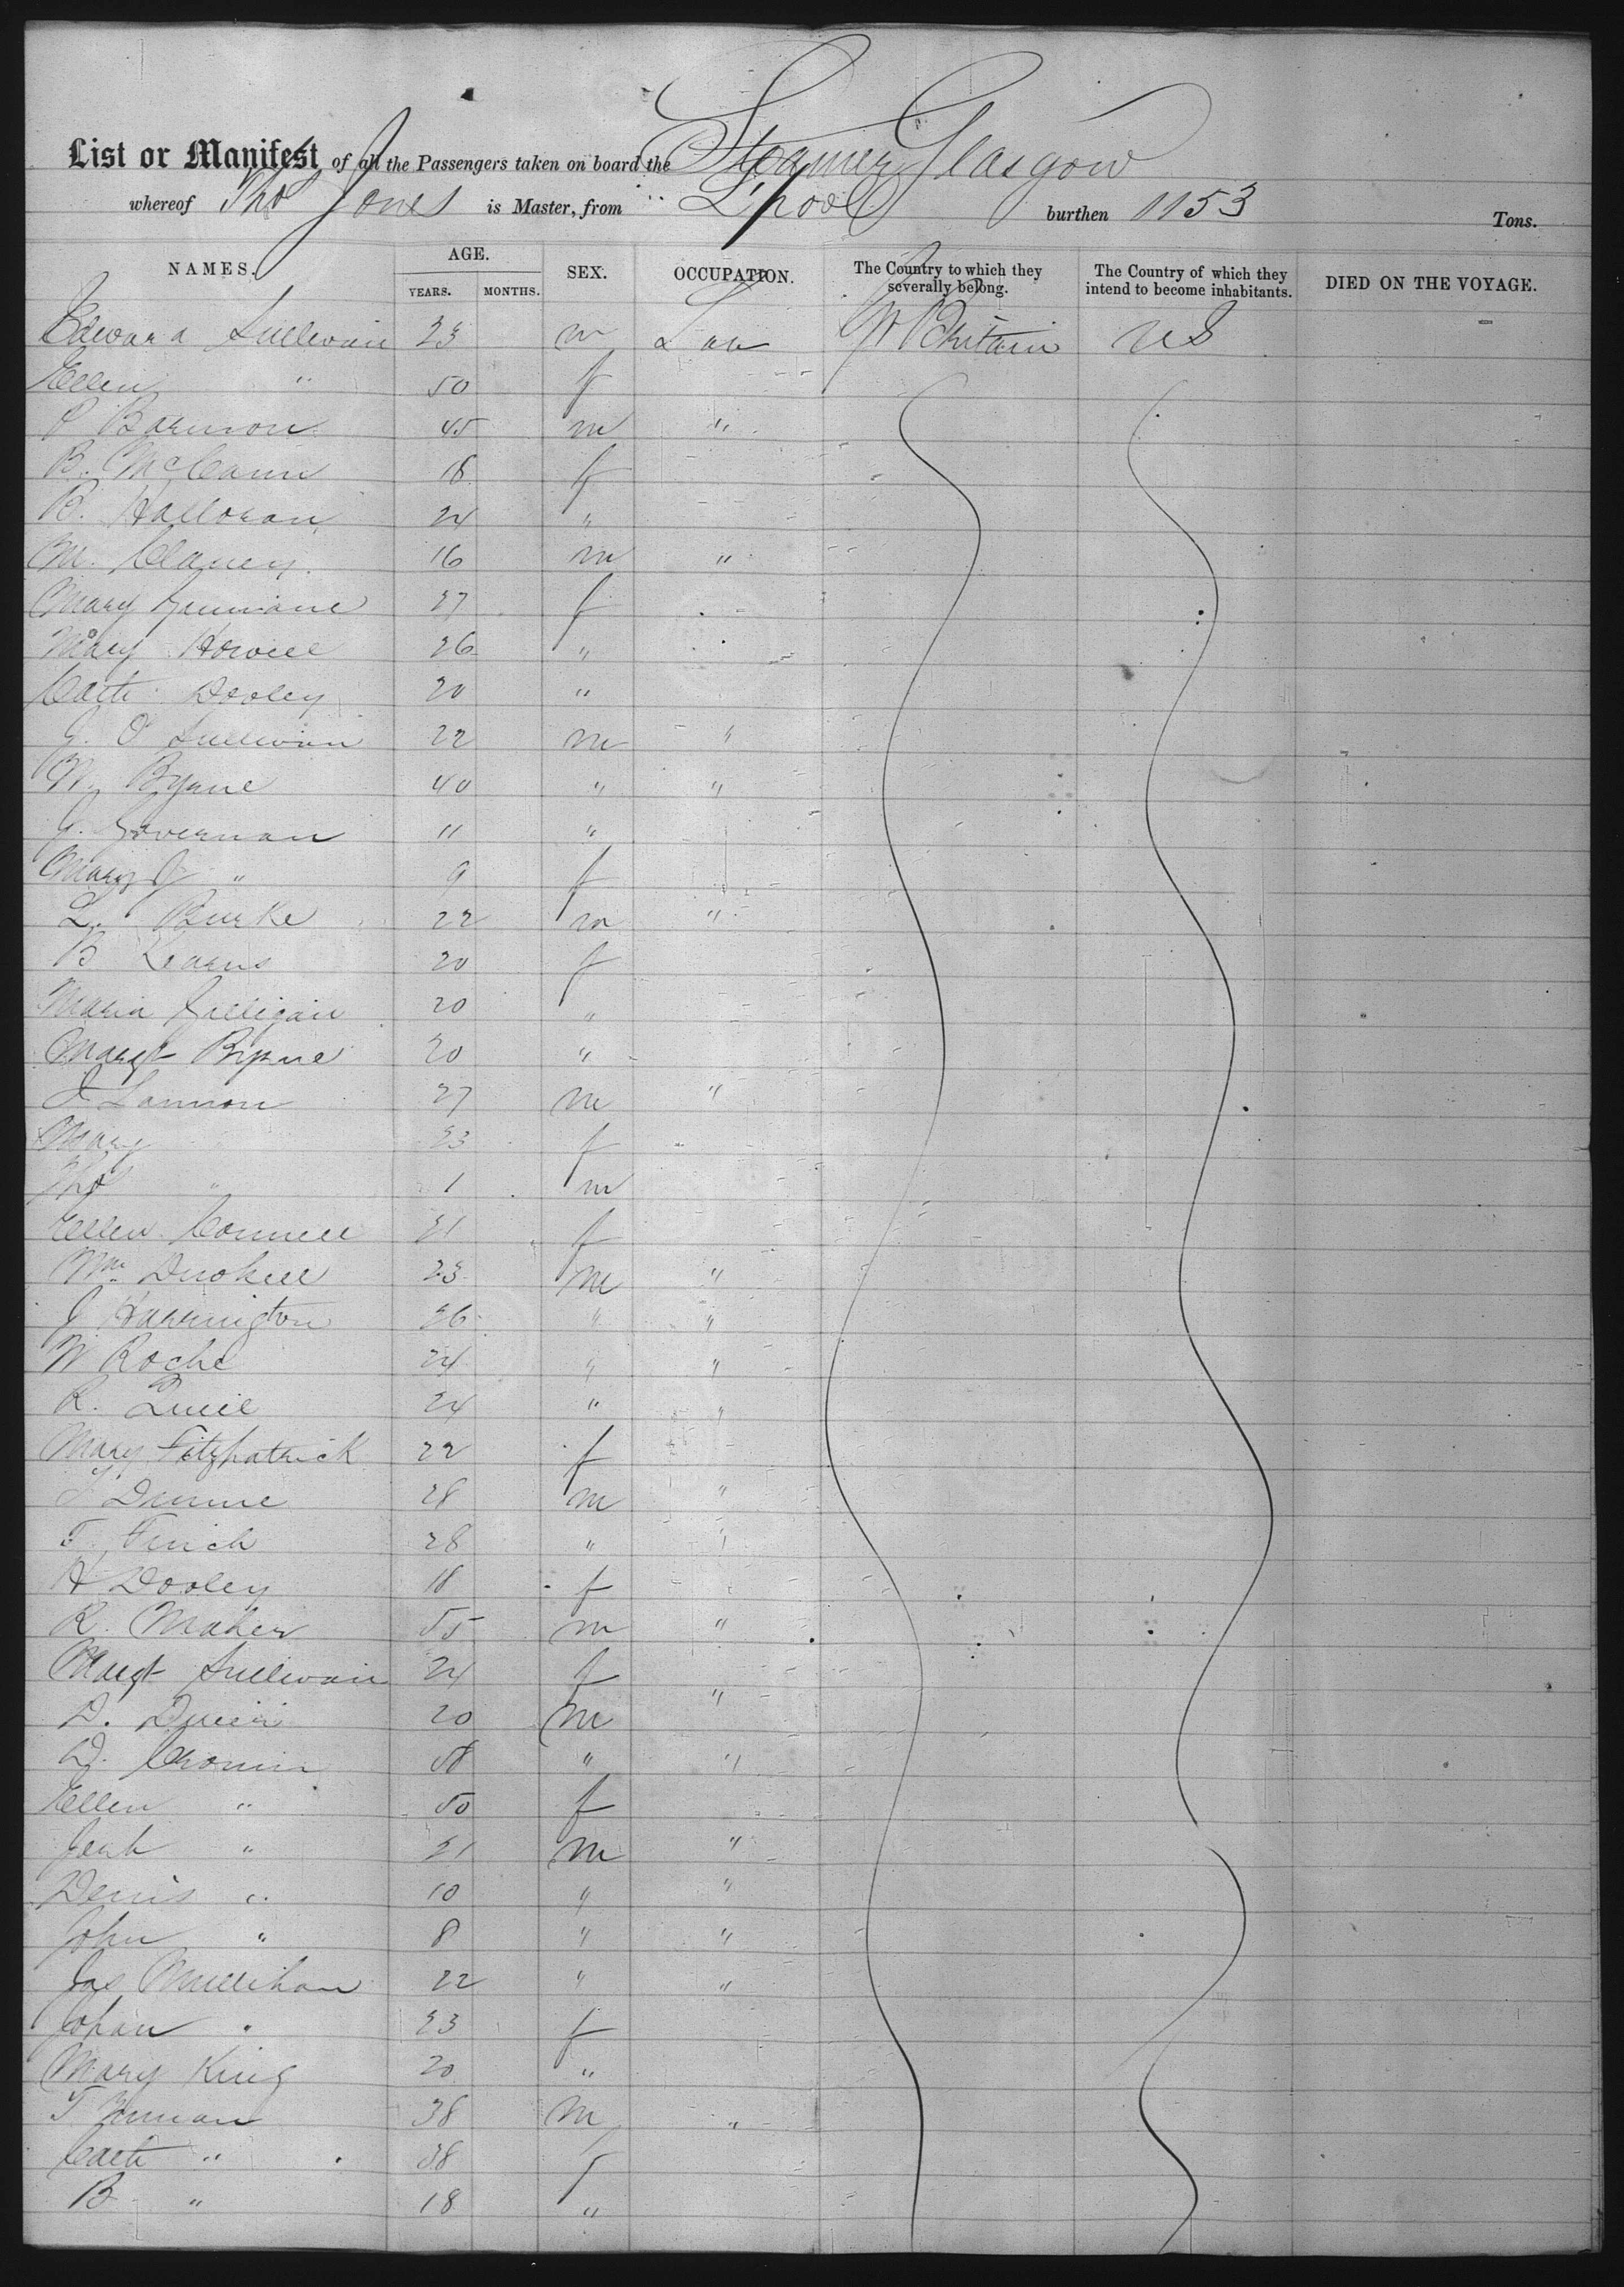 List or Manifest of all the Passengers taken on board the Steamer Glasgow
whereof Thos Jones is Master, from L'pool burthen 1153 Tons.
NAMES. AGE. YEARS. MONTHS. SEX. OCCUPATION. The Country to which they severally belong. The Country of which they intend to become inhabitants. DIED ON THE VOYAGE.
Edward Sullivan 23 m Lab Gt Britain US
Ellen " 50 f
P Bannon 45 m "
B. McCann 18 f
B. Halloran 24 "
M. Clancy 16 m "
Mary 27 f
Mary Howell 26 "
Cath Dooley 20 "
J. O'Sullivan 22 m "
W. Byrne 40 " "
J. Governan 11 "
Mary J " 9 f
L. Burke 22 m "
B Kearns 20 f
Maria Gilligan 20 "
Margt Byrne 20 "
J Lannon 27 m "
Mary 23 f
Thos " 1 m
Ellen Connell 21 f
Wm 23 m "
J Harrington 26 " "
W Roche 24 " "
R. 24 " "
Mary Fitzpatrick 22 f
T Dunne 28 m "
F. Finch 28 " "
A Dooley 18 f
R. Maher 55 m "
Margt Sullivan 24 f
D. 20 m "
D. Cronin 58 " "
Ellen " 50 f
Jerh " 21 m "
Denis " 10 " "
John " 8 " "
Jas Mullihan 22 " "
Johan " 23 f
Mary King 20 "
T. Nunan 38 m "
Cath " 38 f
B " 18 "